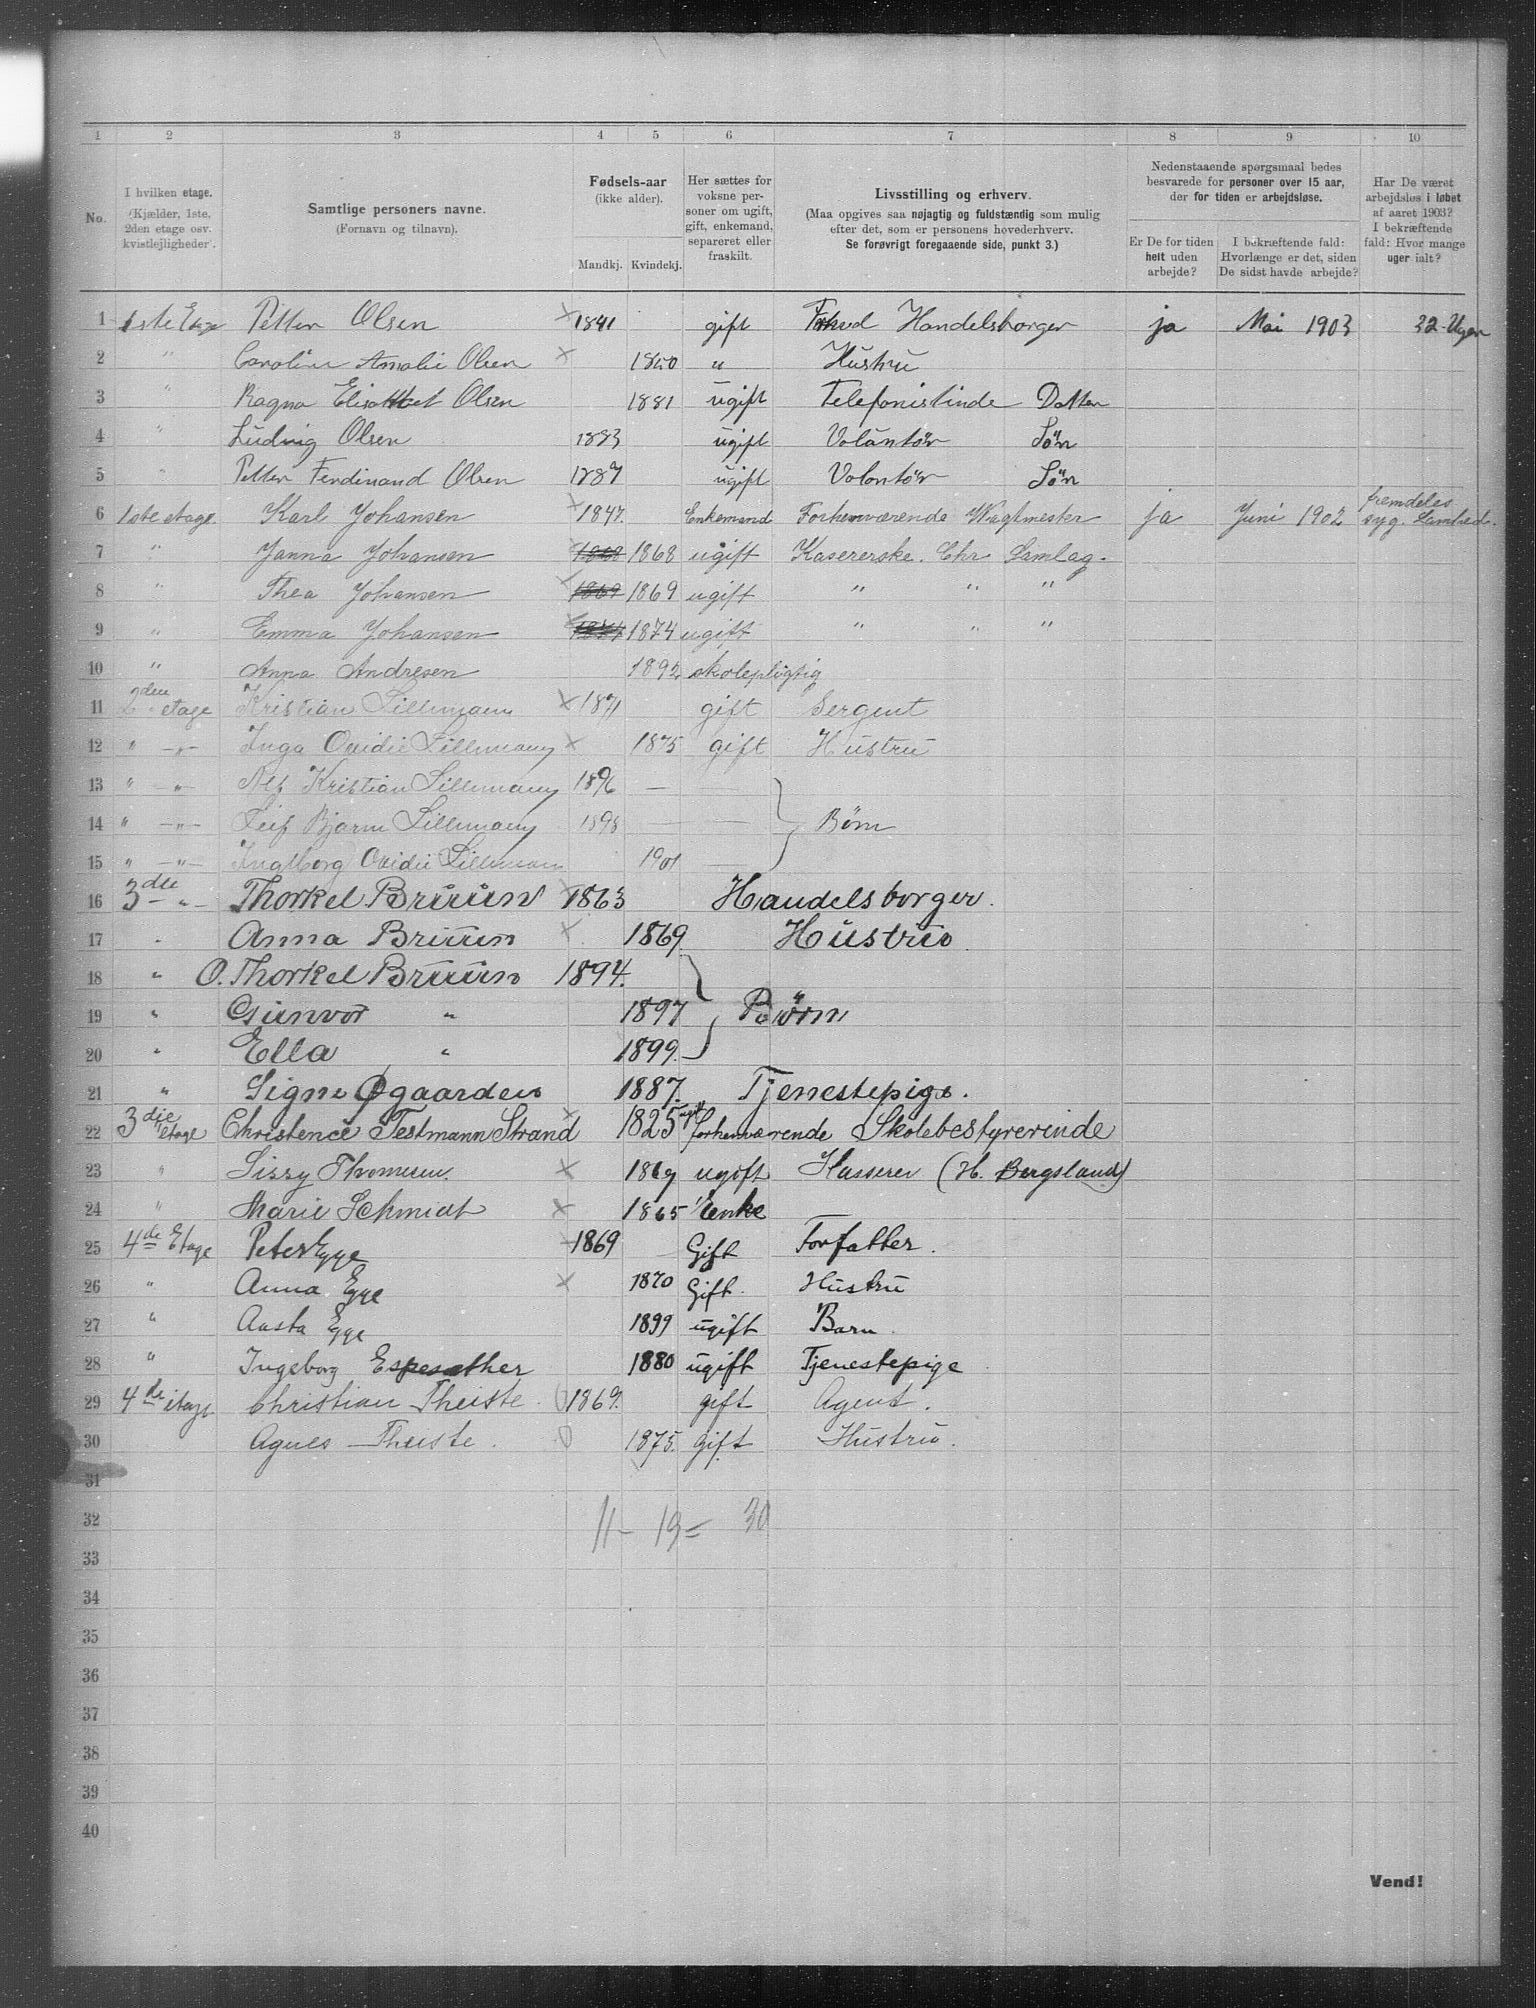 1 2 3 4 5 6 7 8 9 10
No. I hvilken etage. (Kjælder, 1ste, 2den etage osv. kvistlejligheder).
Samtlige personers navne. (Fornavn og tilnavn).
Fødsels-aar (ikke alder). Mandkj. Kvindekj.
Her sættes for voksne personer om ugift, gift, enkemand, separeret eller fraskilt.
Livsstilling og erhverv. (Maa opgives saa nøjagtig og fuldstændig som mulig efter det, som er personens hovederhverv. Se forøvrigt foregaaende side, punkt 3.)
Nedenstaaende spørgsmaal bedes besvarede for personer over 15 aar, der for tiden er arbejdsløse.
Er De for tiden helt uden arbejde?
I bekræftende fald: Hvorlænge er det, siden De sidst havde arbejde?
Har De været arbejdsløs i løbet af aaret 1903? I bekræftende fald: Hvor mange uger ialt?
1 1ste Etage Petter Olsen × 1841 gift Handelsborger ja Mai 1903 32 Uger
2 " Caroline Amalie Olsen × 1850 " Hustru
3 " Ragna Elisabet Olsen 1881 ugift Telefonistinde Datter
4 " Ludvig Olsen 1883 ugift Volantør Søn
5 " Petter Ferdinand Olsen 1887 ugift Volontør Søn
6 1ste etage. Karl Johansen × 1847. Enkemand Forhenværende Vagtmester ja Juni 1902 fremdeles syg.
7 " Janna Johansen 1868 1868 ugift Kasererske. Chr Samlag.
8 " Thea Johansen × 1869 1869 ugift " " "
9 " Emma Johansen 1874 1874 ugift " " "
10 " Anna Andresen 1892 skolepligtig
11 2den etage Kristian Lillemann × 1871 gift Sergent
12 " -"- Inga Ovidie Lillemann × 1875 gift Hustru
13 " -"- Alf Kristian Lillemann 1896 —
14 " -"- Leif Bjarne Lillemann 1898 — — Børn
15 " -"- Ingeborg Ovidie Lillemann 1901 —
16 3die - " - Thorkel Bruun × 1863 Handelsborger.
17 " Anna Bruun × 1869 Hustru.
18 " O. Thorkel Bruun 1894.
19 " Gunvor " 1897 Børn
20 " Ella " 1899.
21 " Signe Øgaarden 1887. Tjenestepige.
22 3die etage Christence Testmann Strand × 1825 ugift forhenværende Skolebestyrerinde
23 " Sissy Thomesen. × 1869 ugift Kasserer (H. Bergsland)
24 " Marie Schmidt × 1865 Enke
25 4de Etage Peter Egge 1869 Gift Forfatter.
26 " Anna Egge × 1870 Gift. Hustru
27 " Aasta Egge 1899 ugift Barn.
28 " Ingeborg Espesæther 1880 ugift Tjenestepige
29 4de etage Christian Theiste. 0 1869. gift Agent.
30 Agnes Theiste. 0 1875. gift Hustru.
31
32 11 - 19 = 30
33
34
35
36
37
38
39
40
Vend!